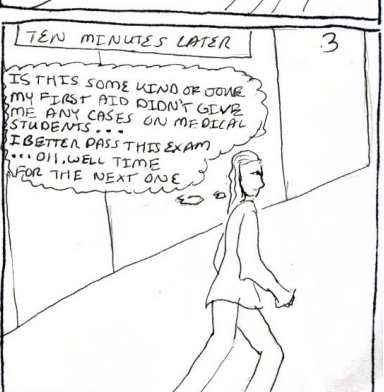 TEN MINUTES LATER
3
IS THIS SOME KIND OF JOKE
MY FIRST AID DIDN'T GIVE
ME ANY CASES ON MEDICAL
STUDENTS...
I BETTER PASS THIS EXAM
...OH, WELL TIME
FOR THE NEXT ONE